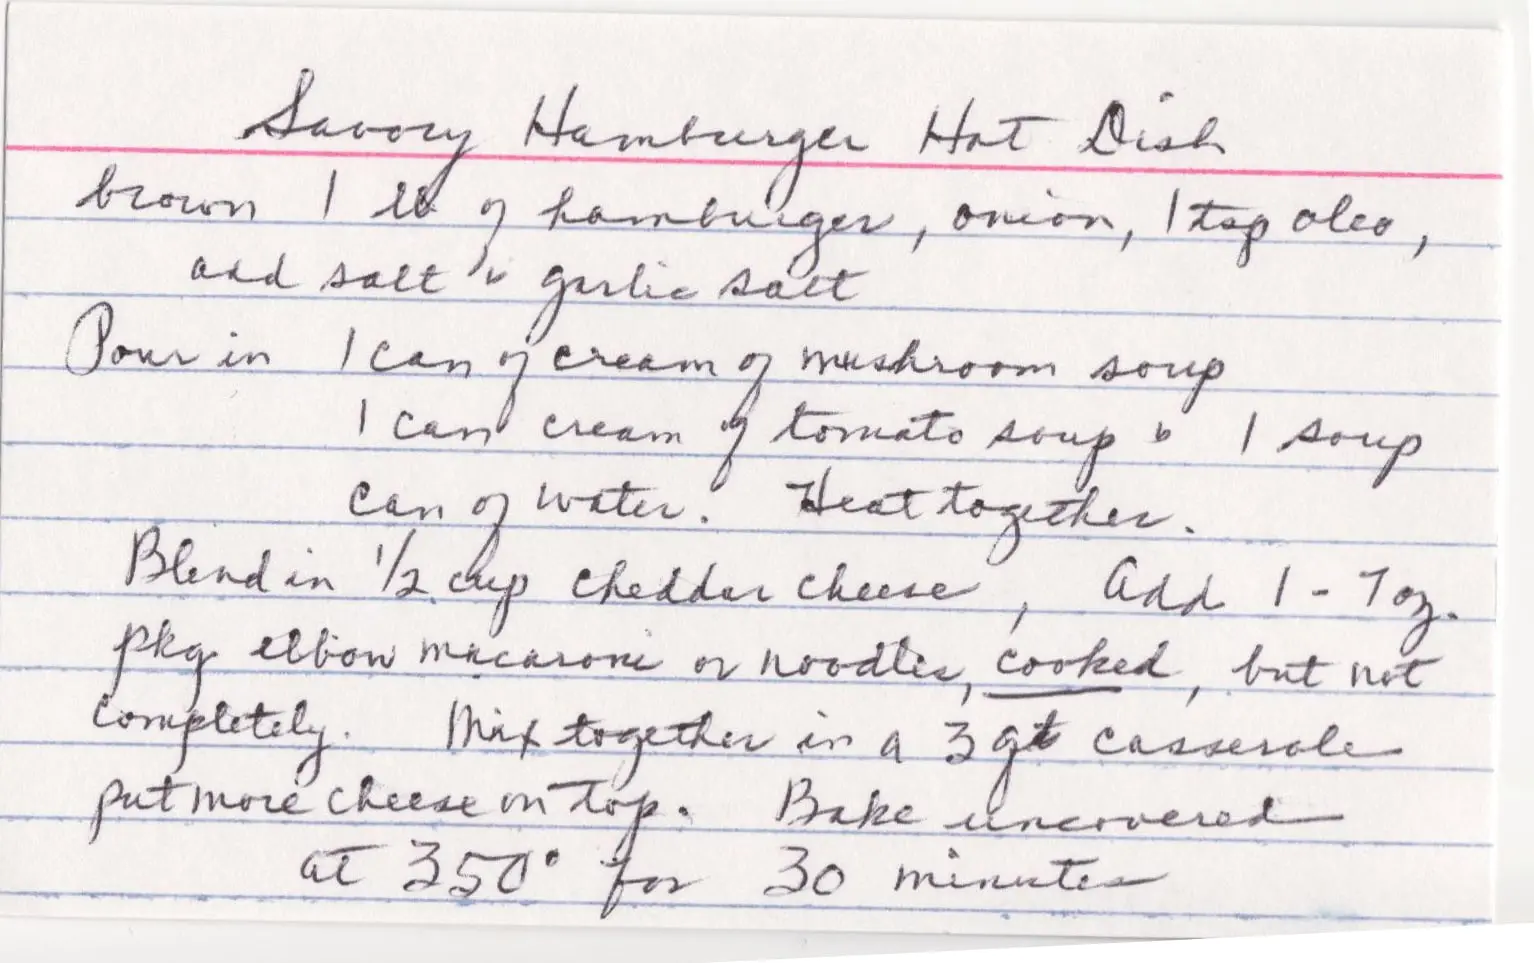 Savory Hamburger Hot Dish
brown 1 lb of hamburger, onion, 1 tsp oleo,
add salt & garlic salt
Pour in 1 can of cream of mushroom soup
1 can cream of tomato soup & 1 soup
can of water. Heat together.
Blend in 1/2 cup cheddar cheese, Add 1 - 7 oz.
pkg elbow macaroni or noodles, cooked, but not
completely. Mix together in a 3 qt casserole
put more cheese on top. Bake uncovered
at 350° for 30 minutes